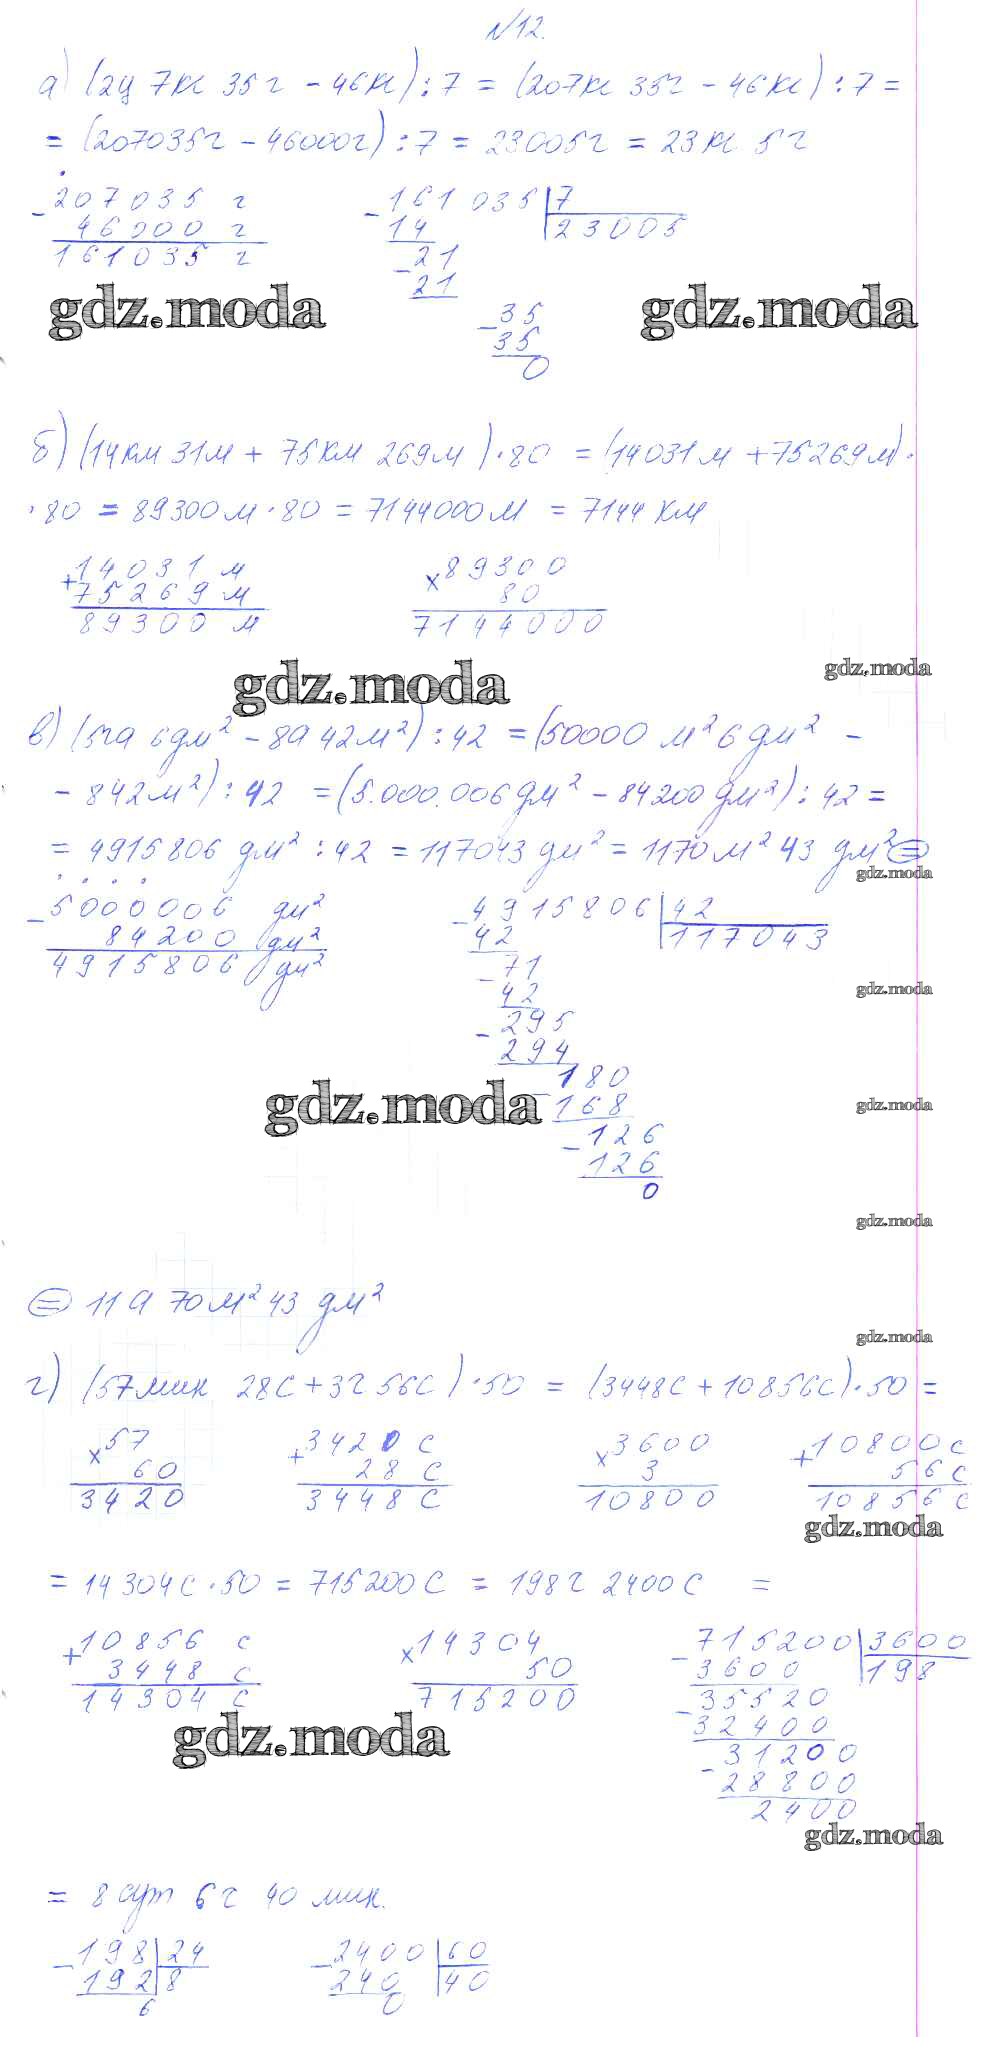 №12.
а) (2ц 7кг 35г - 46кг) : 7 = (207кг 35г - 46кг) : 7 =
= (207035г - 46000г) : 7 = 23005г = 23кг 5г
- 207035 г
46000 г
161035 г
- 161035 | 7
14 23005
- 21
21
- 35
35
0
gdz.moda gdz.moda
б) (14км 31м + 75км 269м) · 80 = (14031м + 75269м) ·
· 80 = 89300м · 80 = 7144000м = 7144 км
+ 14031 м
75269 м
89300 м
× 89300
80
7144000
gdz.moda
gdz.moda
в) (5га 6дм² - 8а 42м²) : 42 = (50000 м² 6 дм² -
- 842м²) : 42 = (5.000.006дм² - 84200дм²) : 42 =
= 4915806 дм² : 42 = 117043 дм² = 1170м² 43 дм² =
gdz.moda
- 5000006 дм²
84200 дм²
4915806 дм²
- 4915806 | 42
42 117043
- 71
42
- 295
294
- 180
168
- 126
126
0
gdz.moda
gdz.moda
gdz.moda
gdz.moda
= 11а 70м² 43 дм²
gdz.moda
г) (57мин 28с + 3г 56с) · 50 = (3448с + 10856с) · 50 =
× 57
60
3420
+ 3420 с
28 с
3448 с
× 3600
3
10800
+ 10800 с
56 с
10856 с
gdz.moda
= 14304с · 50 = 715200с = 198г 2400с =
+ 10856 с
3448 с
14304 с
× 14304
50
715200
- 715200 | 3600
3600 198
- 35520
32400
- 31200
28800
2400
gdz.moda
gdz.moda
= 8 сут 6г 40 мин.
- 198 | 24
192 8
6
- 2400 | 60
240 40
0